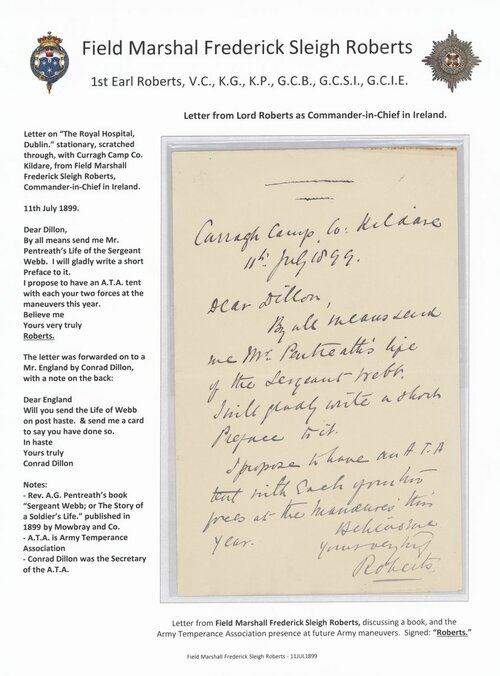 Field Marshal Frederick Sleigh Roberts
1st Earl Roberts, V.C., K.G., K.P., G.C.B., G.C.S.I., G.C.I.E.
Letter from Lord Roberts as Commander-in-Chief in Ireland.
Letter on "The Royal Hospital,
Dublin." stationary, scratched
through, with Curragh Camp Co.
Kildare, from Field Marshall
Frederick Sleigh Roberts,
Commander-in-Chief in Ireland.
11th July 1899.
Dear Dillon,
By all means send me Mr.
Pentreath's Life of the Sergeant
Webb. I will gladly write a short
Preface to it.
I propose to have an A.T.A. tent
with each your two forces at the
maneuvers this year.
Believe me
Yours very truly
Roberts.
The letter was forwarded on to a
Mr. England by Conrad Dillon,
with a note on the back:
Dear England
Will you send the Life of Webb
on post haste. & send me a card
to say you have done so.
In haste
Yours truly
Conrad Dillon
Notes:
- Rev. A.G. Pentreath's book
"Sergeant Webb; or The Story of
a Soldier's Life." published in
1899 by Mowbray and Co.
- A.T.A. is Army Temperance
Association
- Conrad Dillon was the Secretary
of the A.T.A.
Curragh Camp, Co: Kildare
11th July 1899.
Dear Dillon,
By all means send
me Mr. Pentreath's life
of the Sergeant Webb.
I will gladly write a short
Preface to it.
I propose to have an A.T.A
tent with each your two
forces at the Maneuvres this
year. Believe me
yours very truly
Roberts
Letter from Field Marshall Frederick Sleigh Roberts, discussing a book, and the
Army Temperance Association presence at future Army maneuvers. Signed: "Roberts."
Field Marshall Frederick Sleigh Roberts - 11JUL1899